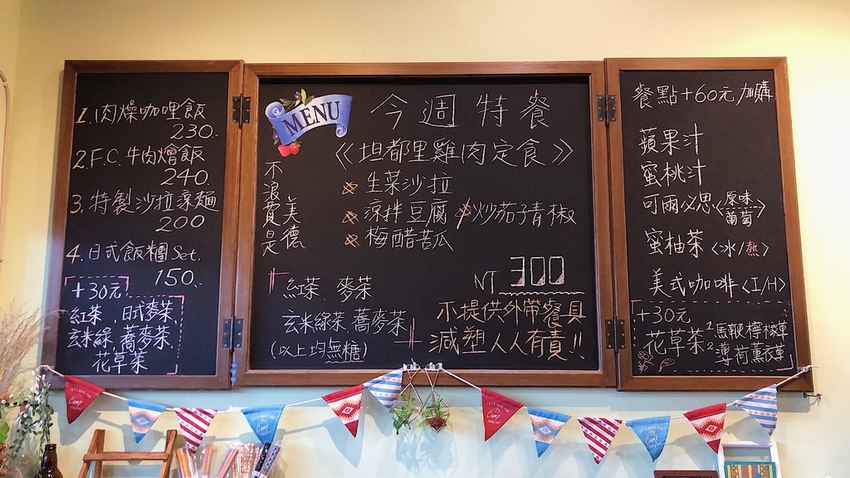 1.肉燥咖哩飯
230.
2.F.C.牛肉燴飯
240.
3.特製沙拉涼麵
200
4.日式飯糰Set.
150.
+30元
紅茶、日式麥茶、
玄米綠、蕎麥茶
花草茶
MENU
今週特餐
《坦都里雞肉定食》
不浪費是美德
生菜沙拉
涼拌豆腐
炒茄子青椒
梅醋苦瓜
NT 300
紅茶、麥茶
玄米綠茶、蕎麥茶
(以上均無糖)
不提供外帶餐具
減塑人人有責!!
餐點+60元/加購
蘋果汁
蜜桃汁
可爾必思<原味
葡萄>
蜜柚茶<冰/熱>
美式咖啡<I/H>
+30元
花草茶
1.馬鞭檸檬草
2.薄荷薰衣草